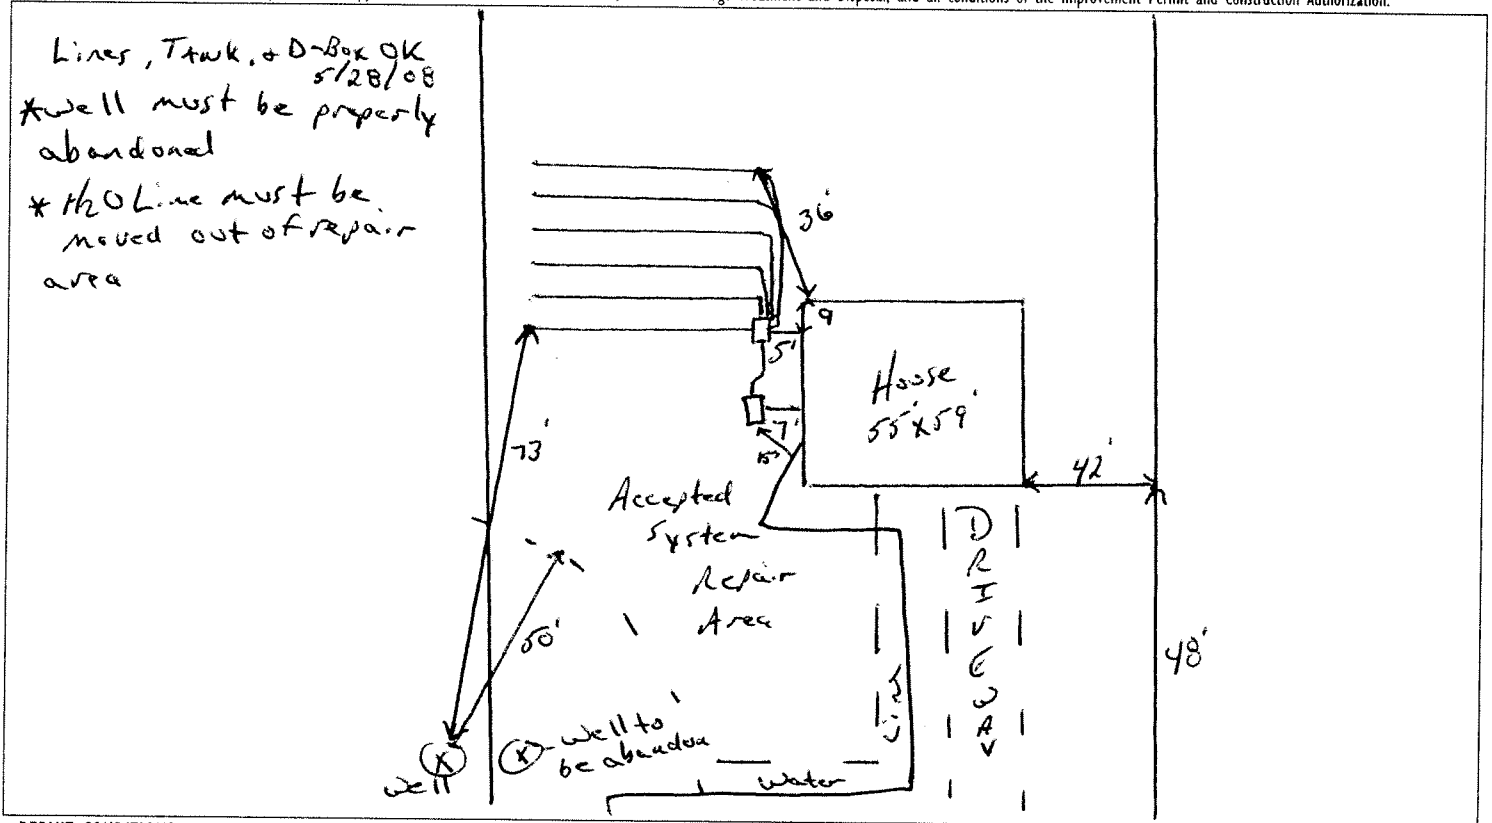 and all conditions of the Improvement Permit and Construction Authorization.
Lines, Tank, + D-Box OK
5/28/08
*well must be properly
abandoned
* H2O Line must be
moved out of repair
area
36'
9
5'
House
55'x59'
7'
15'
73'
42'
Accepted
System
Repair
Area
DRIVEWAY
50'
48'
Line
well to
be abandon
well
Water